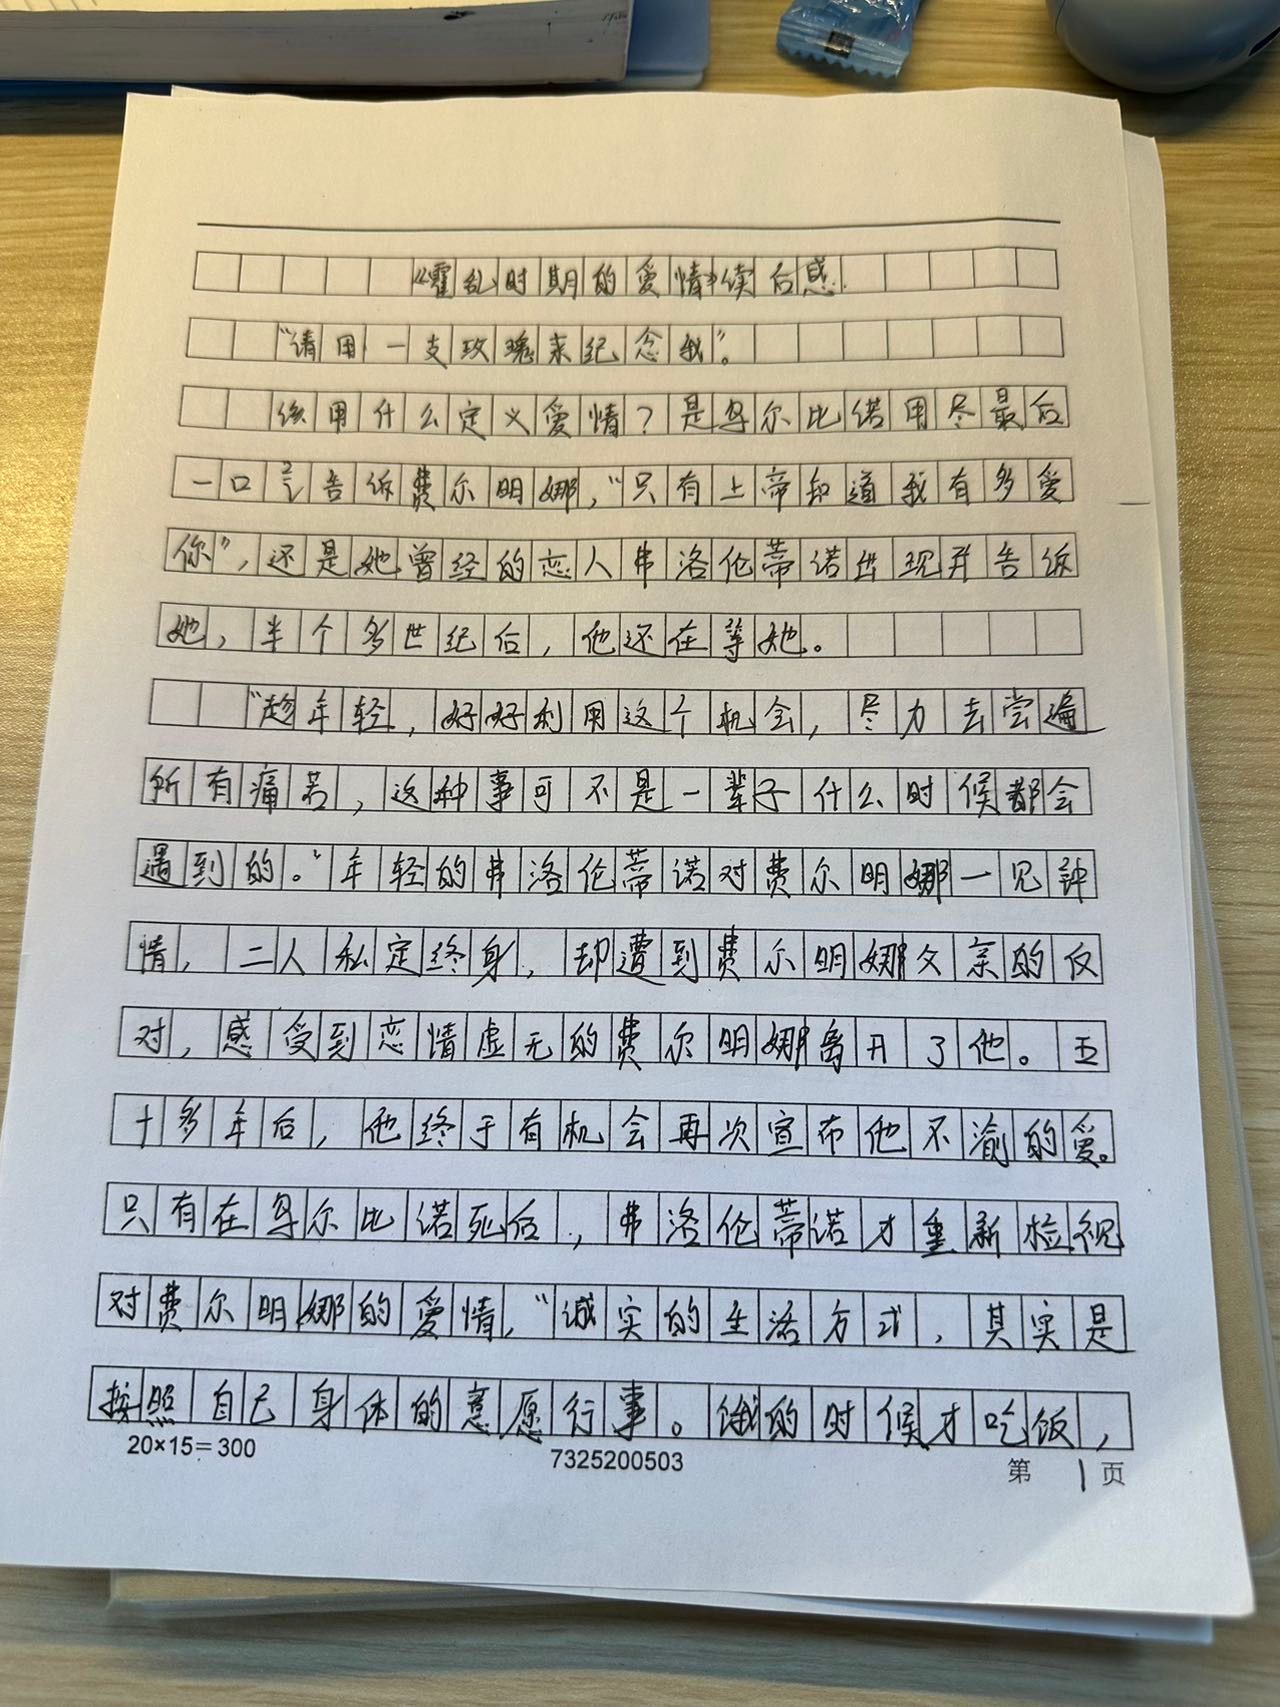 《霍乱时期的爱情》读后感
“请用一支玫瑰来纪念我”。
该用什么定义爱情？是乌尔比诺用尽最后
一口气告诉费尔明娜，“只有上帝知道我有多爱
你”，还是她曾经的恋人弗洛伦蒂诺出现并告诉
她，半个多世纪后，他还在等她。
“趁年轻，好好利用这个机会，尽力去尝遍
所有痛苦，这种事可不是一辈子什么时候都会
遇到的。”年轻的弗洛伦蒂诺对费尔明娜一见钟
情，二人私定终身，却遭到费尔明娜父亲的反
对，感受到恋情虚无的费尔明娜离开了他。五
十多年后，他终于有机会再次宣布他不渝的爱。
只有在乌尔比诺死后，弗洛伦蒂诺才重新检视
对费尔明娜的爱情，“诚实的生活方式，其实是
按照自己身体的意愿行事。饿的时候才吃饭，
20×15＝300
7325200503
第 1 页